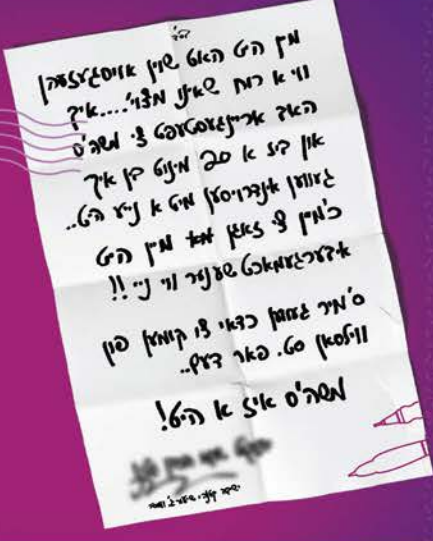 בס"ד
מיין היט האט שוין אויסגעזעהן
ווי א רוח שאינו מצוי'....איך
האב אריינגעסטעפט צו משה'ס
און ביז א 20 מינוט בין איך
געווען אינדרויסען מיט א נייע היט..
כ'מיין צו זאגן מיין היט
איבערגעמאכט שענער ווי ניי!!
ס'מיר געווען כדאי צו קומען פון
ווילסאן סט. פאר דעם..
משה'ס איז א היט!